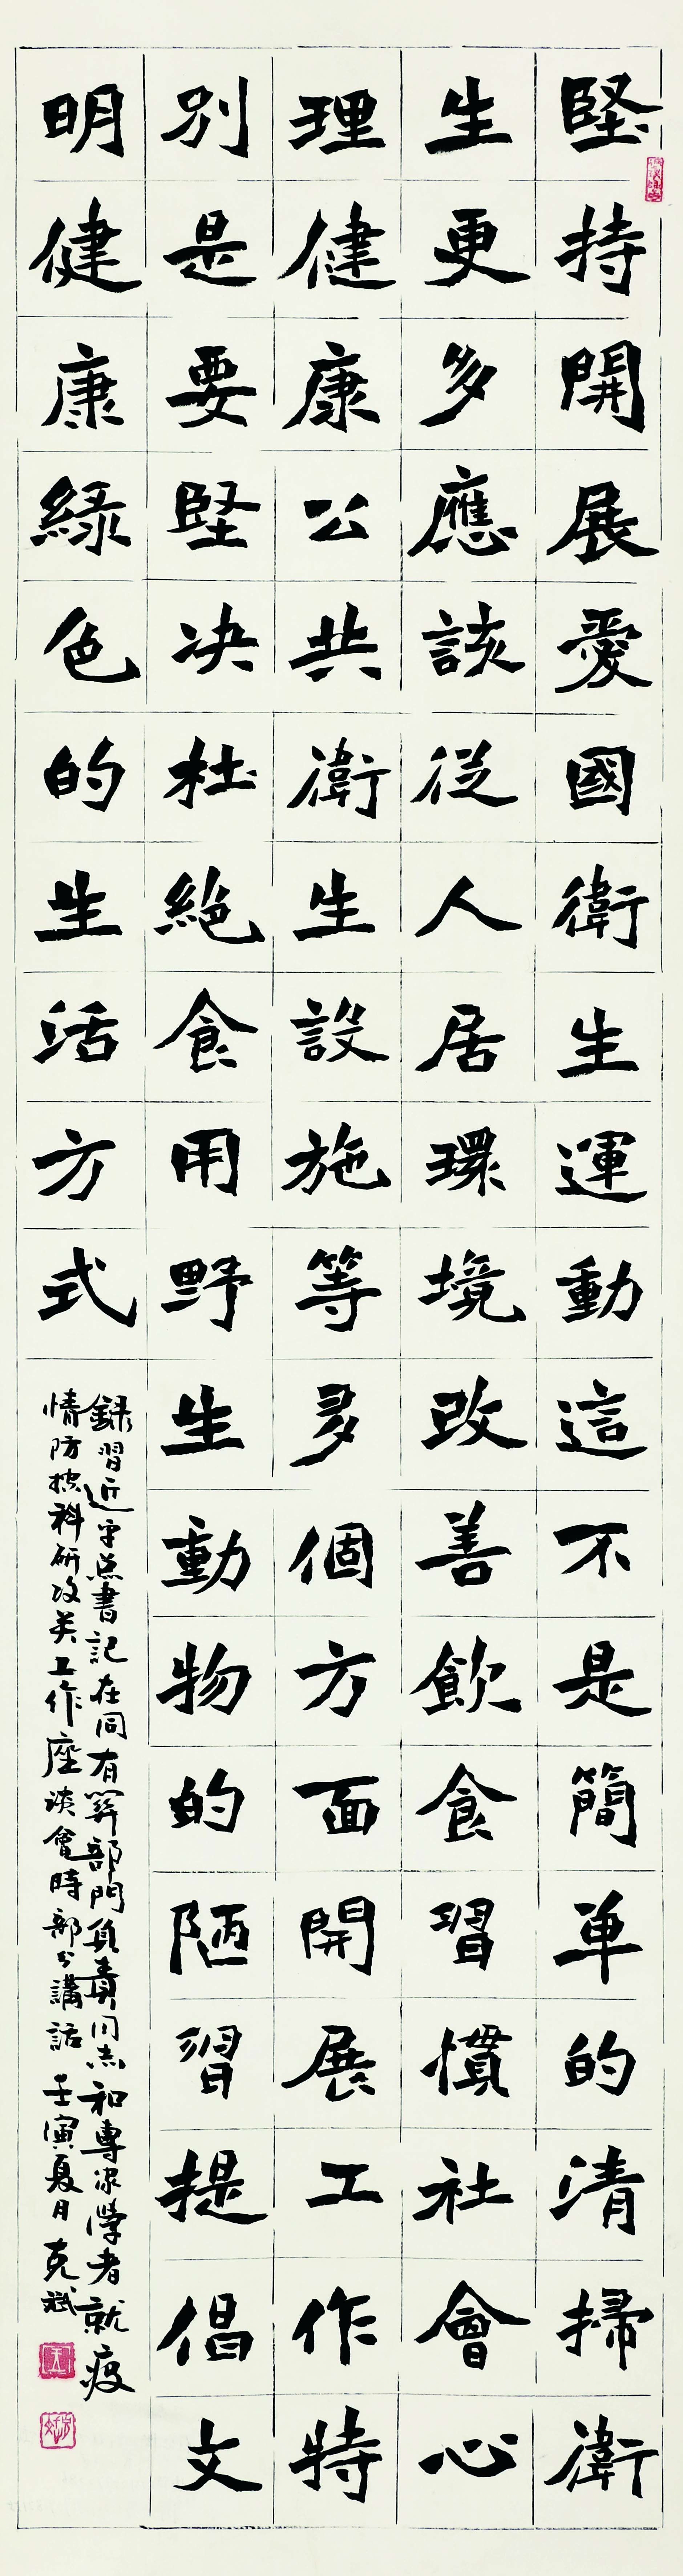 堅持開展愛國衛生運動這不是簡单的清掃衛
生更多應該從人居環境改善飲食習慣社會心
理健康公共衛生設施等多個方面開展工作特
别是要堅决杜絕食用野生動物的陋習提倡文
明健康綠色的生活方式
録習近平总書記在同有關部門負責同志和專家學者就疫
情防控科研攻关工作座谈會時部分講話 壬寅夏月克斌